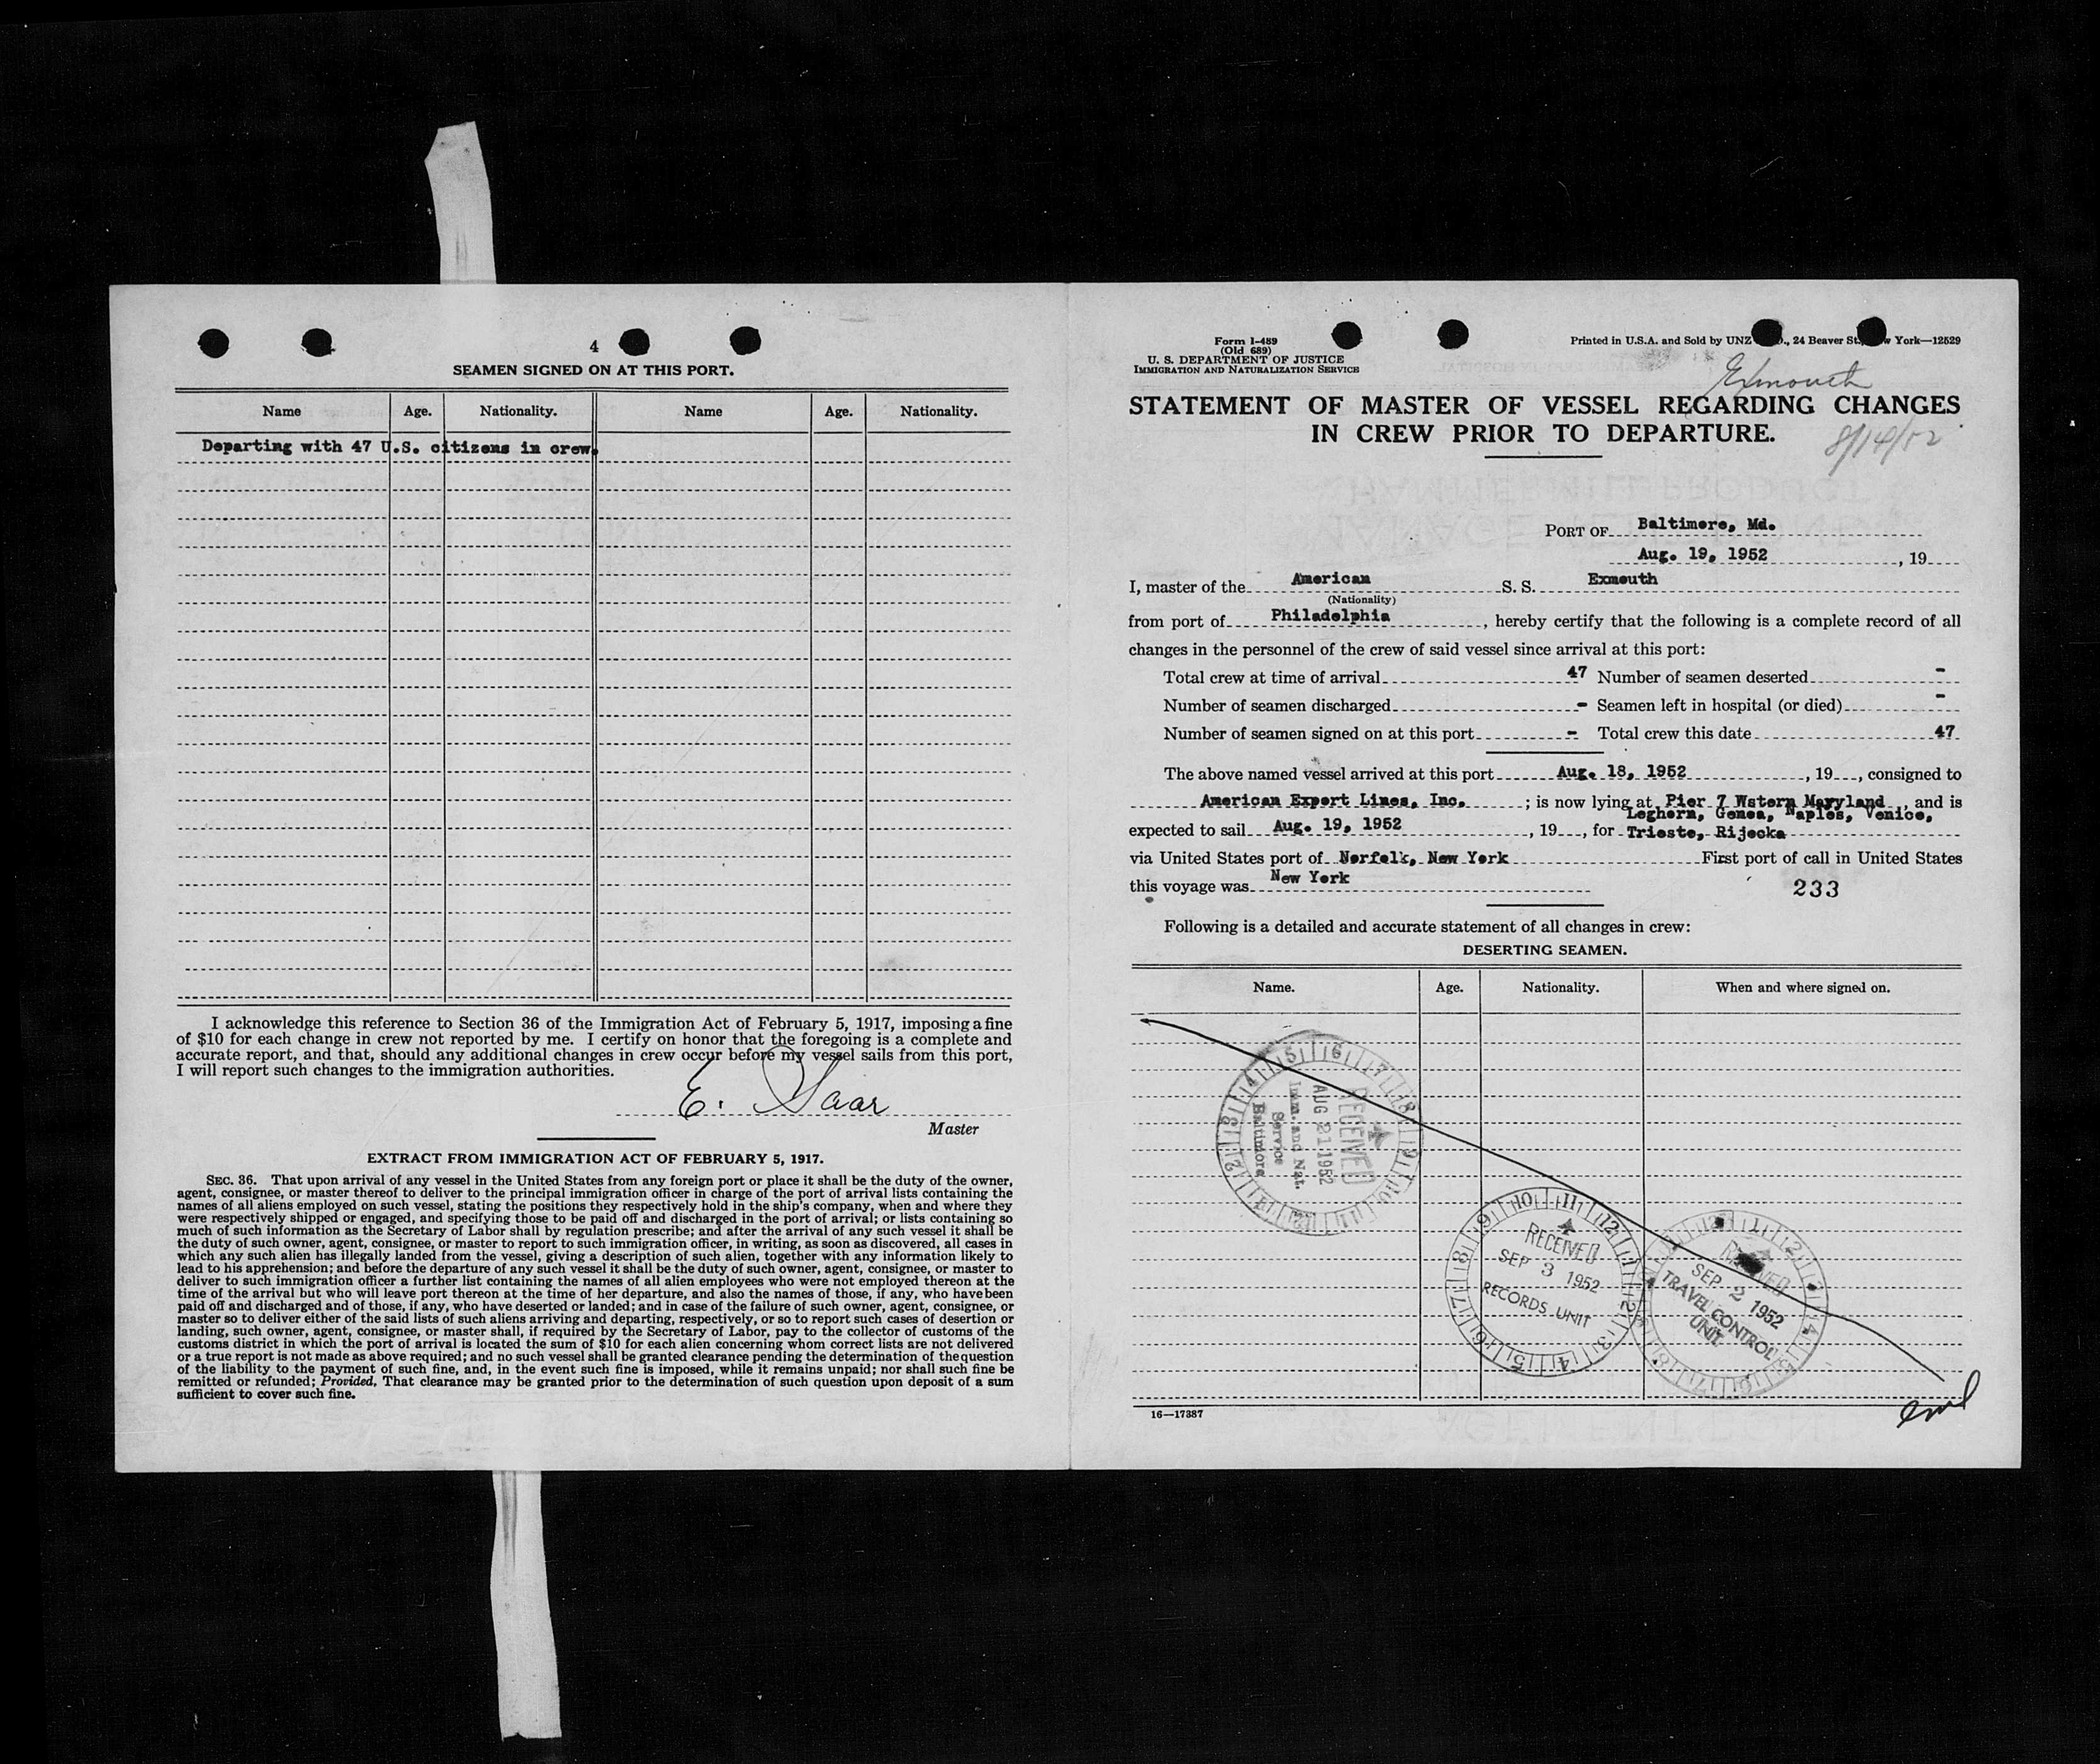 4
SEAMEN SIGNED ON AT THIS PORT.
Name Age. Nationality. Name Age. Nationality.
Departing with 47 U.S. citizens in crew.
I acknowledge this reference to Section 36 of the Immigration Act of February 5, 1917, imposing a fine
of $10 for each change in crew not reported by me. I certify on honor that the foregoing is a complete and
accurate report, and that, should any additional changes in crew occur before my vessel sails from this port,
I will report such changes to the immigration authorities.
E. Saar
Master
EXTRACT FROM IMMIGRATION ACT OF FEBRUARY 5, 1917.
SEC. 36. That upon arrival of any vessel in the United States from any foreign port or place it shall be the duty of the owner,
agent, consignee, or master thereof to deliver to the principal immigration officer in charge of the port of arrival lists containing the
names of all aliens employed on such vessel, stating the positions they respectively hold in the ship's company, when and where they
were respectively shipped or engaged, and specifying those to be paid off and discharged in the port of arrival; or lists containing so
much of such information as the Secretary of Labor shall by regulation prescribe; and after the arrival of any such vessel it shall be
the duty of such owner, agent, consignee, or master to report to such immigration officer, in writing, as soon as discovered, all cases in
which any such alien has illegally landed from the vessel, giving a description of such alien, together with any information likely to
lead to his apprehension; and before the departure of any such vessel it shall be the duty of such owner, agent, consignee, or master to
deliver to such immigration officer a further list containing the names of all alien employees who were not employed thereon at the
time of the arrival but who will leave port thereon at the time of her departure, and also the names of those, if any, who have been
paid off and discharged and of those, if any, who have deserted or landed; and in case of the failure of such owner, agent, consignee, or
master so to deliver either of the said lists of such aliens arriving and departing, respectively, or so to report such cases of desertion or
landing, such owner, agent, consignee, or master shall, if required by the Secretary of Labor, pay to the collector of customs of the
customs district in which the port of arrival is located the sum of $10 for each alien concerning whom correct lists are not delivered
or a true report is not made as above required; and no such vessel shall be granted clearance pending the determination of the question
of the liability to the payment of such fine, and, in the event such fine is imposed, while it remains unpaid; nor shall such fine be
remitted or refunded; Provided, That clearance may be granted prior to the determination of such question upon deposit of a sum
sufficient to cover such fine.
Form I-489
(Old 689)
U. S. DEPARTMENT OF JUSTICE
IMMIGRATION AND NATURALIZATION SERVICE
Printed in U.S.A. and Sold by UNZ 24 Beaver St. York—12529
Exmouth
STATEMENT OF MASTER OF VESSEL REGARDING CHANGES
IN CREW PRIOR TO DEPARTURE.
8/14/52
PORT OF Baltimore, Md.
Aug. 19, 1952, 19
I, master of the American S. S. Exmouth
(Nationality)
from port of Philadelphia, hereby certify that the following is a complete record of all
changes in the personnel of the crew of said vessel since arrival at this port:
Total crew at time of arrival 47 Number of seamen deserted -
Number of seamen discharged - Seamen left in hospital (or died) -
Number of seamen signed on at this port - Total crew this date 47
The above named vessel arrived at this port Aug. 18, 1952, 19, consigned to
American Export Lines, Inc. ; is now lying at Pier 7 Wstern Maryland, and is
Leghorn, Genoa, Naples, Venice,
expected to sail Aug. 19, 1952, 19, for Trieste, Rijecka
via United States port of Norfolk, New York First port of call in United States
this voyage was New York
233
Following is a detailed and accurate statement of all changes in crew:
DESERTING SEAMEN.
Name. Age. Nationality. When and where signed on.
RECEIVED
AUG 21 1952
Imm. and Nat.
Service
Baltimore
RECEIVED
SEP 3 1952
RECORDS UNIT
RECEIVED
SEP 2 1952
TRAVEL CONTROL
UNIT
16—17387
eml